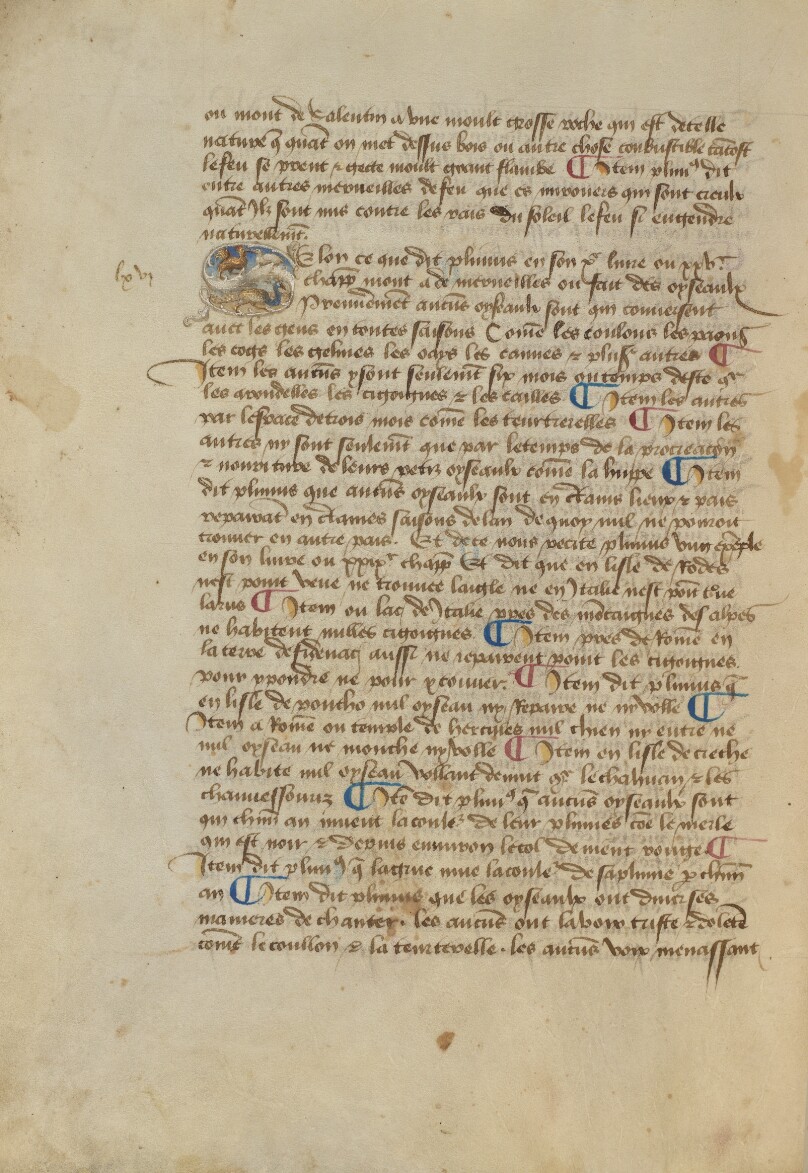 ou mont de Salentin a une moult grosse roche qui est de telle
nature q̃ quãt on met dessus bois ou autre chose conbustible tãtost
le feu se prent ⁊ gecte moult grant flambe ¶ Item pliniꝰ dit
entre autres merveilles de feu que es mirouers qui sont
quãt Ilz sont mis contre les rais du soleil le feu si engendre
naturellemẽt.
Selon ce que dit plinius en son xe livre ou xxve
lxvi
chapp̃ mont a de merveilles ou fait des oyseaulx
Premieremẽt aucũs oyseaulx sont qui conversent
avec les gens en toutes saisons Cõme les coulons les paons
les cocqs les gelines les oayes les cannes ⁊ plusrs autres ¶
Item les aucũs y sont seulemẽt six mois ou temps deste
les arondelles les cigoignes ⁊ les cailles ¶ Item les autres
par lespace de trois mois cõme les teurtrerelles ¶ Item les
autres ny sont seulemẽt que par le temps de la procreac̃on
⁊ nouriture de leurs petiz oyseaulx cõme la huppe ¶ Item
dit plinius que aucũs oyseaulx sont en c̃tains lieux ⁊ pais
repairãt en c̃taines saisons de lan de quoy nul ne pourroit
trouver en autre pais. Et de ce nous recite plinius ung exẽple
en son livre ou xxixe chapp̃ Et dit que en lisle de Rodes
nest point veue ne trouvee laigle ne en Italie nest poñt
larus ¶ Item ou lac de Italie pres des mõtaignes des alpes
ne habitent nulles cigoignes ¶ Item pres de Romẽ en
la terre de aussi ne repairent point les cigoignes
pour ppondre ne pour y couver. ¶ Item dit plinius q̃
en lisle de poncho nul oyseau ny Repaire ne ny volle ¶
Item a Romẽ ou temple de hercules nul chien ny entre ne
nul oyseau ne mouche ny volle ¶ Item en lisle de creche
ne habite nul oyseau vollant de nuit le chahuan ⁊ les
chauvessouriz ¶ Itẽ dit pliniꝰ q̃ aucũs oyseaulx sont
qui chũn an muent la coulr de leur plumes cõe le merle
qui est noir ⁊ depuis environ le col devient rouge ¶
Item dit pliniꝰ q̃ la grue mue la coulr de sa plume p chũn
an ¶ Item dit plinius que les oyseaulx ont diverses
manieres de chanter. les aucũs ont la voix triste ⁊ dolẽte
comẽ le coullon ⁊ la teurterelle. les aucũs voix menassant